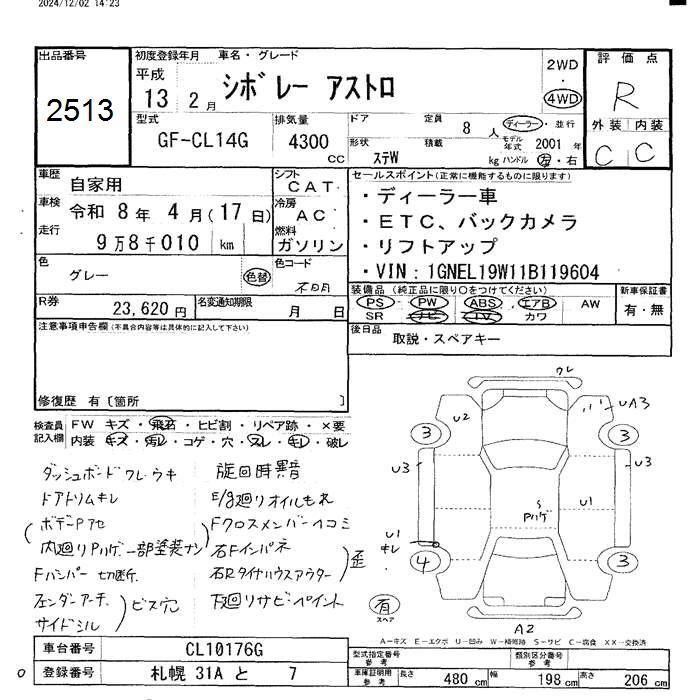 2024/12/02 14:23
出品番号
2513
初度登録年月 車名・グレード
平成
13 2月
シボレー アストロ
2WD
・
4WD
評価点
R
外装 内装
C C
型式
GF-CL14G
排気量
4300 cc
ドア 定員 8人
ディーラー・並行
形状 積載 kg
ステW
モデル年式 2001年
ハンドル 左・右
車歴 自家用
車検 令和 8年 4月(17日)
走行 9万8千010 km
シフト CAT
冷房 AC
燃料 ガソリン
セールスポイント(正常に機能するものに限ります)
・ディーラー車
・ETC、バックカメラ
・リフトアップ
・VIN:1GNEL19W11B119604
色 グレー 色替
色コード 不明
R券 23,620円
名変通知期限 月 日
装備品(純正品に限り○をつけてください)
PS・PW・ABS・エアB・AW
SR ナビ TV カワ
新車保証書
有・無
後日品
取説・スペアキー
注意事項申告欄(不具合内容等は具体的に記入して下さい)
修復歴 有〔箇所 〕
検査員記入欄
FW キズ・飛石・ヒビ割・リペア跡・×要
内装 キズ・汚レ・コゲ・穴・スレ・キレ・破レ
ダッシュボードワレ・ウキ
ドアトリムキレ
ボデーPアセ
内廻りPハゲ一部塗装ナシ
Fバンパー切断
フェンダーアーチ
サイドシル
ビス穴
旋回時異音
E/g廻りオイルもれ
Fクロスメンバーヘコミ
右Fインパネ
右Rタイヤハウスアウター
歪
下廻りサビ・ペイント
ワレ
U2
UA3
3
3
U3
U3
S
Pハゲ
U1
U1
キレ
4
3
有
スペア
A2
A－キズ E－エクボ U－凹み W－補修跡 S－サビ C－腐食 XX－交換済
車台番号 CL10176G
登録番号 札幌 31A と 7
型式指定番号 参考
類別区分番号 参考
車庫証明用 参考
長さ 480 cm 幅 198 cm 高さ 206 cm